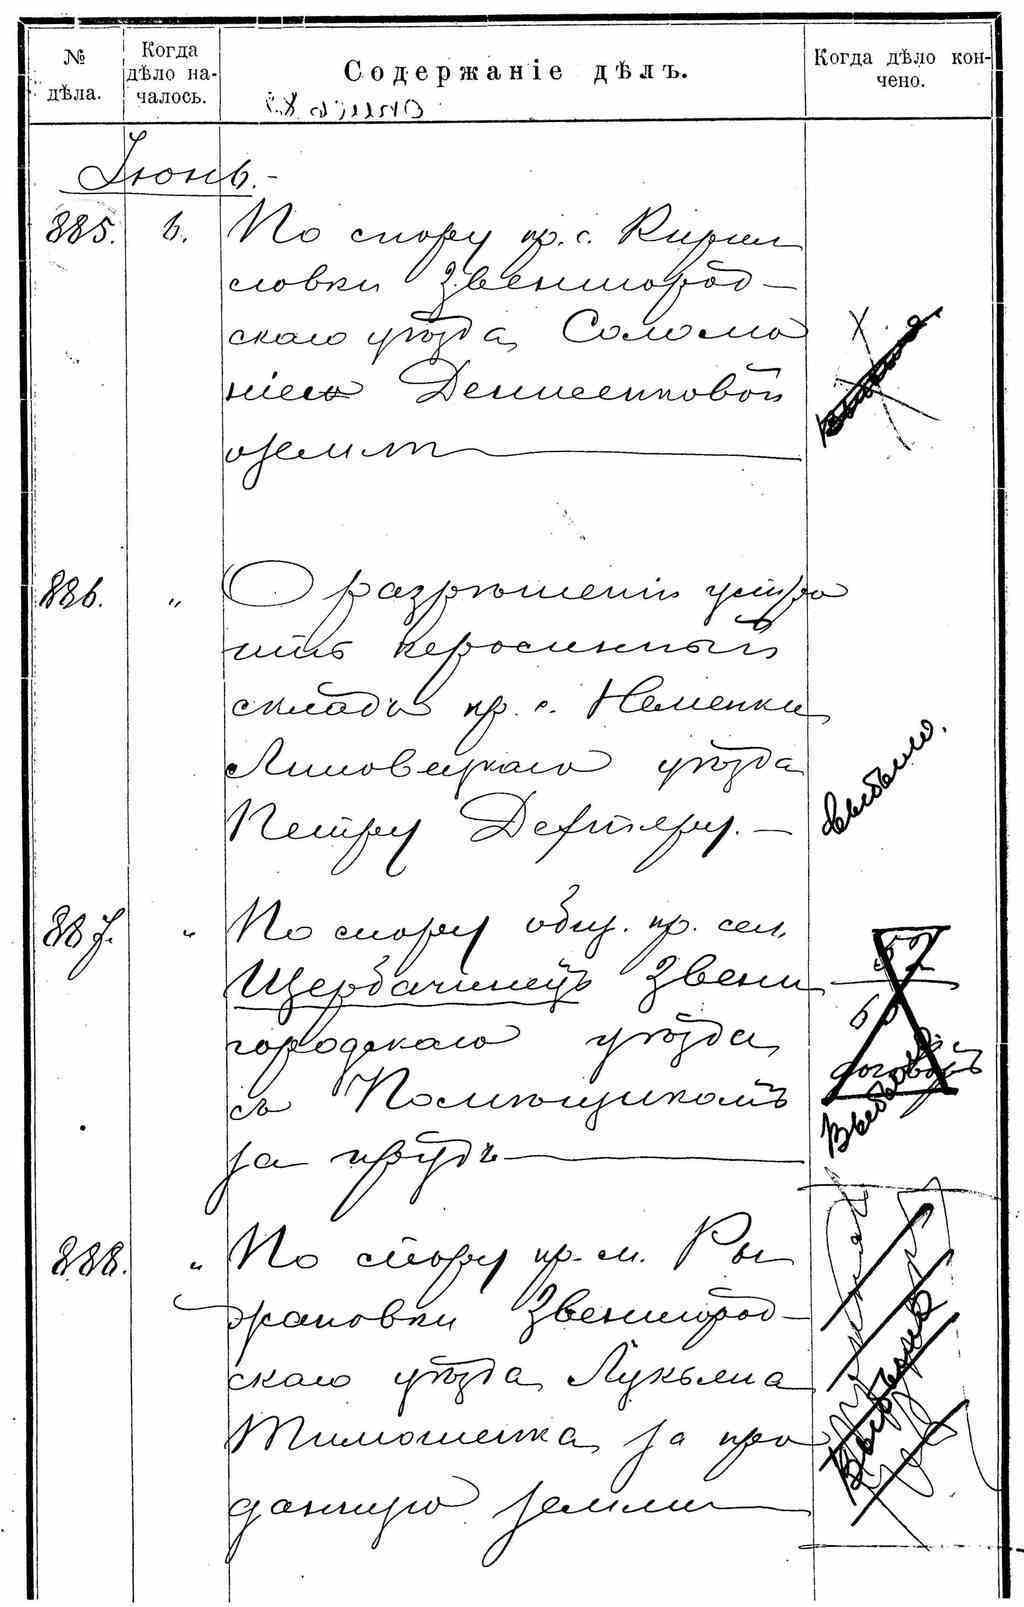 № дѣла.
Когда дѣло началось.
Содержаніе дѣлъ.
Когда дѣло кончено.
Іюнь.-
885. 6. По спору пр. с. Кирил
ловки Звенигород-
скаго уѣзда, Соломо
ніею Денисенковой
о землѣ
886. " О разрѣшеніи устро
ить керосинный
складъ пр. с. Неменки
Липовецкаго уѣзда
Петру Дефтяру. -
выбыло.
887. " По спору общ. пр. сел.
Щербачинецъ Звени
городскаго уѣзда,
съ Помѣщикомъ
за прудъ
договоръ
Выбыло
888. " По спору пр. м. Ры
жановки Звенигород-
скаго уѣзда, Лукьяна
Тимошенка, за про
данную землю